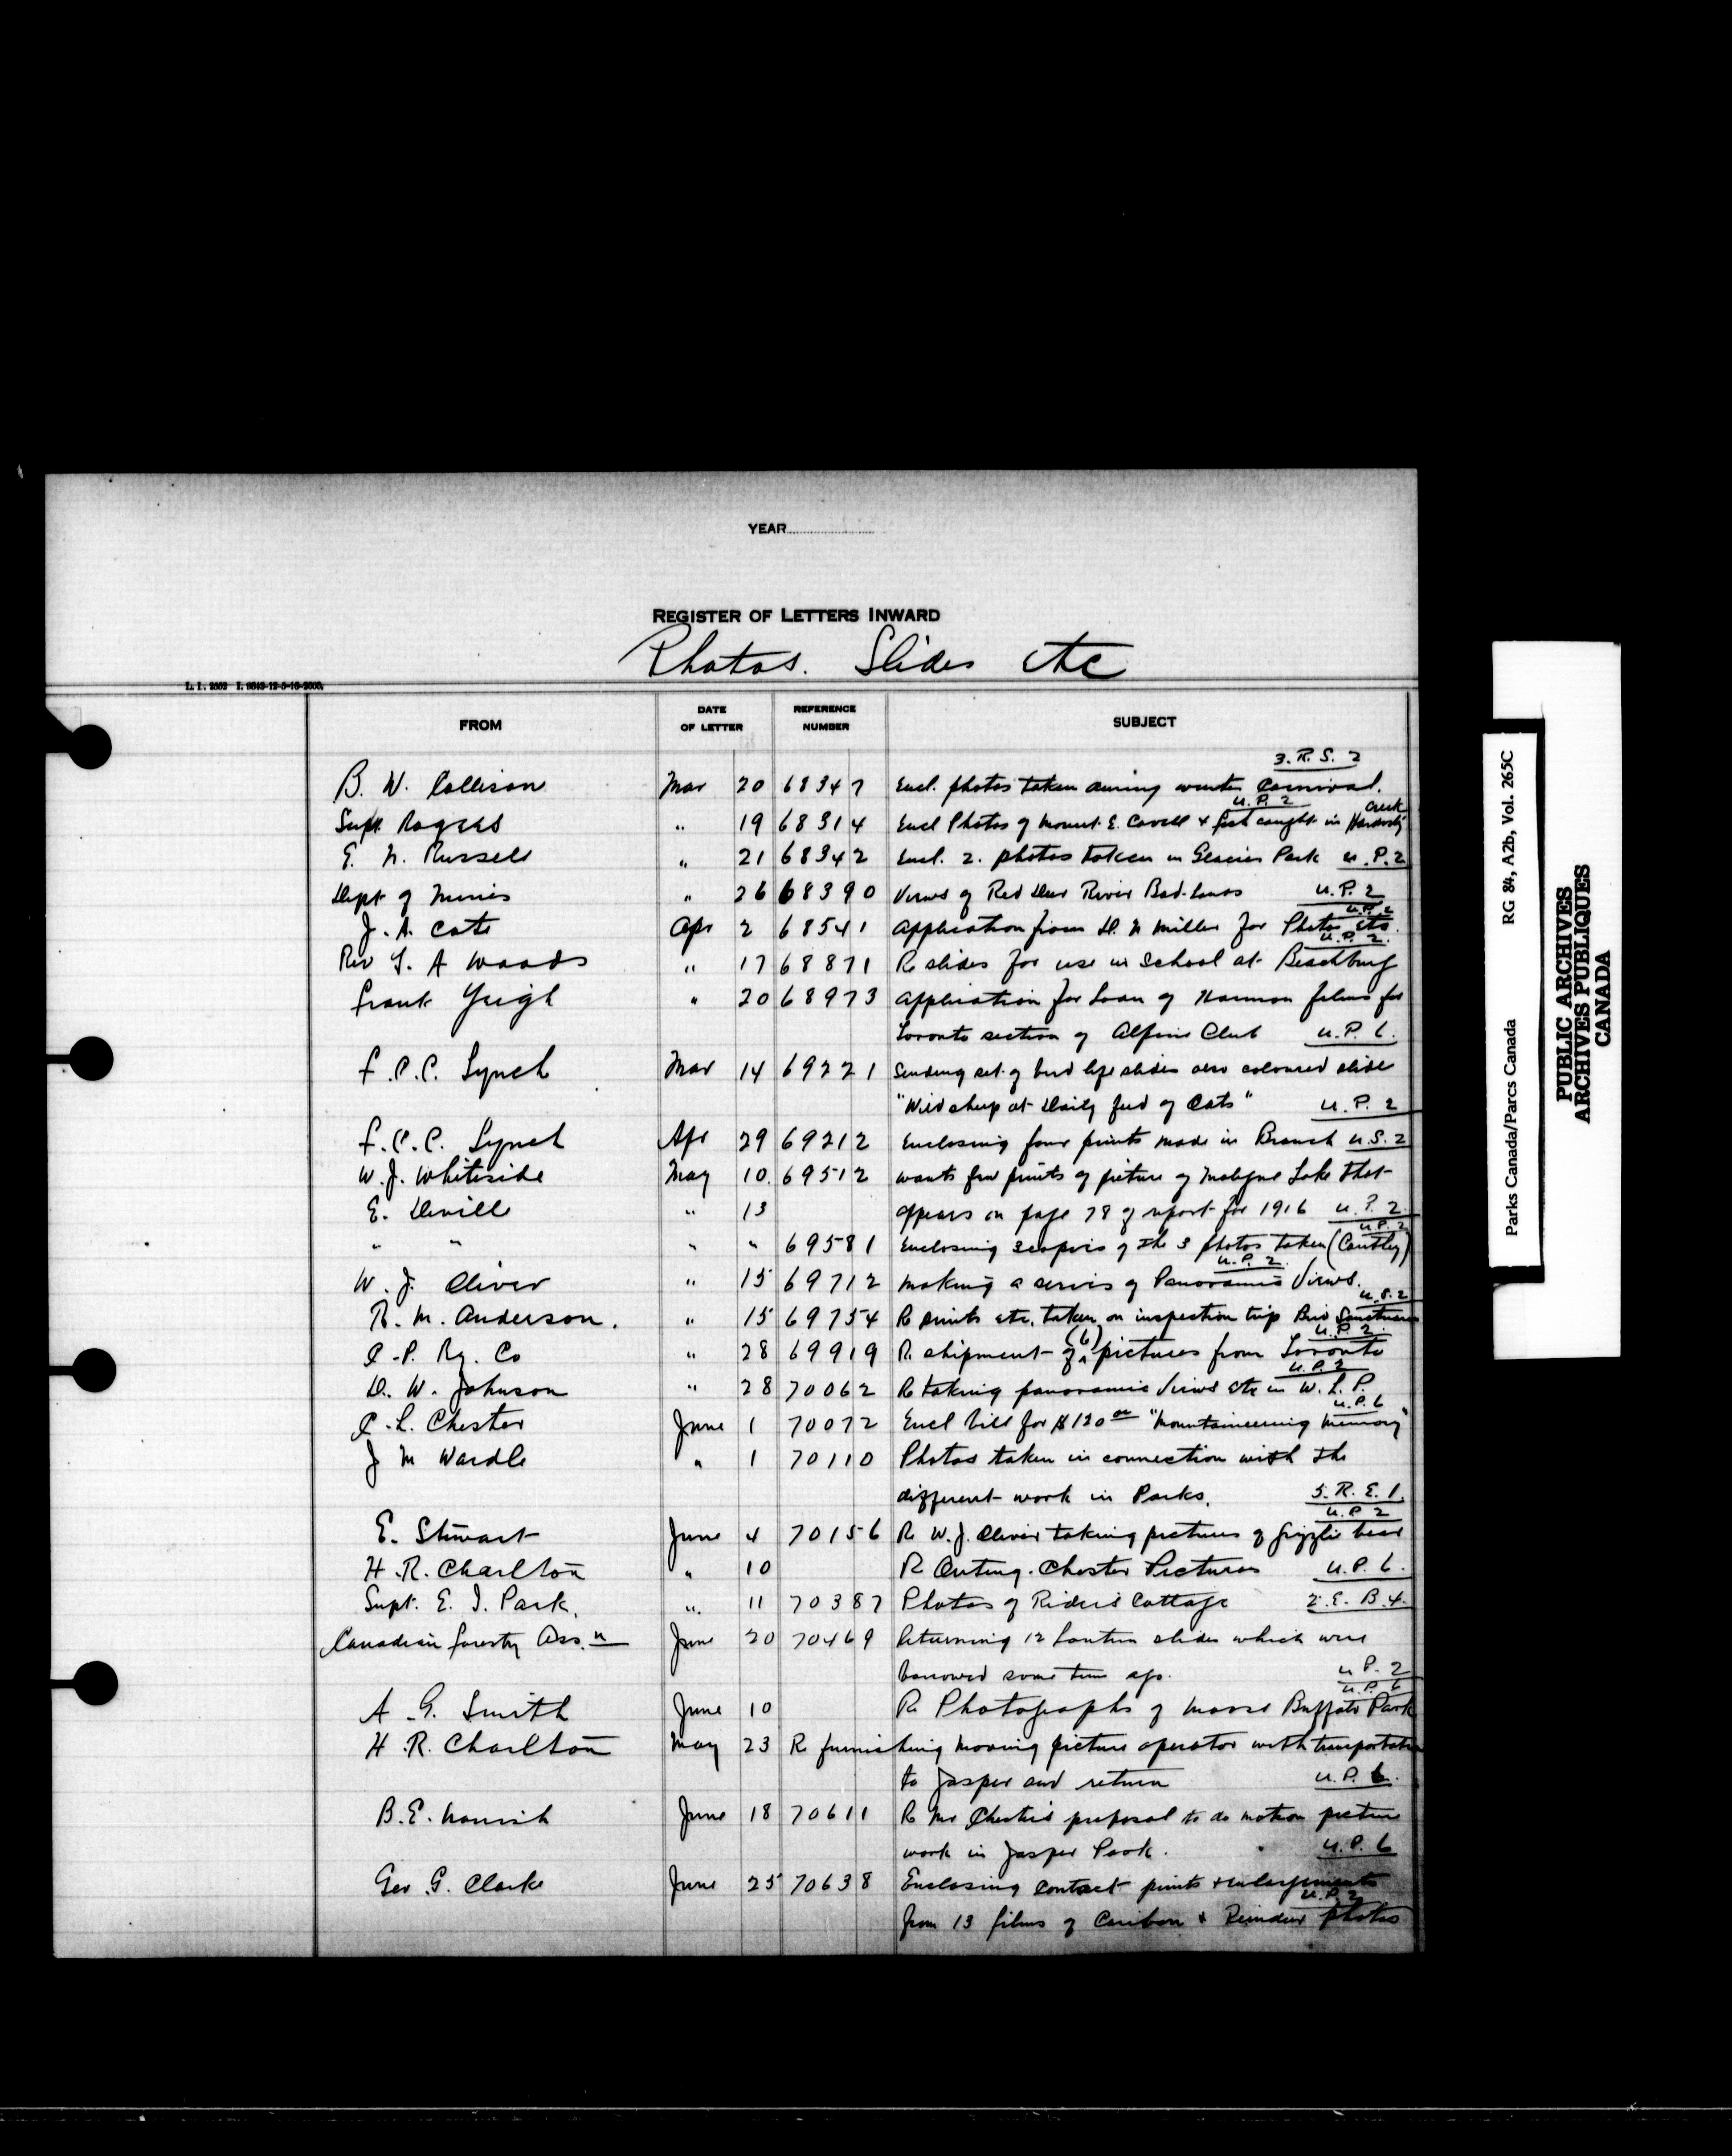 YEAR
REGISTER OF LETTERS INWARD
Photos. Slides etc
L. I. 2552
FROM DATE OF LETTER REFERENCE NUMBER SUBJECT
3. R. S. 2
B. W. Collison Mar 20 68347 Encl. photos taken during winter Carnival.
U. P. 2
Creek
Supt. Rogers " 19 68314 Encl Photos of Mount E. Cavell & fish caught in
E. N. Russell " 21 68342 Encl. 2. photos taken in Glacier Park U. P. 2
Dept of Mines " 26 68390 Views of Red Deer River Bad-Lands U. P. 2
U. P. 2
J. A. Cote Apr 2 68541 application from D. N Miller for Photos etc.
U. P. 2.
Rev A Woods " 17 68871 Re slides for use in School at Beachburg
Frank Yeigh " 20 68973 application for Loan of Harmon films for
Toronto section of Alpine Club U. P. 6.
F. C. C. Lynch Mar 14 69221 Sending set of bird life slides also coloured slide
"Wild sheep at Daily feed of Oats" U. P. 2
F. C. C. Lynch Apr 29 69212 Enclosing four prints made in Branch U. S. 2
W. J. Whiteside May 10. 69512 wants few prints of picture of Maligne Lake that
E. Deville " 13 appears on page 78 of report for 1916 U. P. 2
U. P. 2
" " " " 69581 Enclosing 3 copies of the 3 photos taken (Cautley)
U. P. 2.
W. J. Oliver " 15 69712 making a series of Panoramic Views.
U. S. 2
R. M. Anderson. " 15 69754 Re prints etc. taken on inspection trip Bird Sanctuaries
U. P. 2.
(6)
C. P. Ry. Co " 28 69919 Re shipment of pictures from Toronto
U. P. 2
D. W. Johnson " 28 70062 Re taking panoramic Views etc in W. L. P.
U. P. 6
C. L. Chester June 1 70072 Encl bill for $120 00 "Mountaineering Memory"
J M Wardle " 1 70110 Photos taken in connection with the
different work in Parks. 5. R. E. 1.
U. P 2
E. Stewart June 4 70156 Re W. J. Oliver taking pictures of Grizzlie bear
H. R. Charlton " 10 Re Outing. Chester Pictures U. P. 6.
Supt. E. I. Park. " 11 70387 Photos of Rider's Cottage 2. E. B. 4.
Canadian Forestry Ass.n June 20 70469 Returning 12 Lantern slides which were
borrowed some time ago. U P. 2
U. P. 6
A. G. Smith June 10 Re Photographs of Moose Buffalo Park
H. R. Charlton May 23 Re furnishing moving picture operator with transportation
to Jasper and return U. P. 6.
B. E. Norrish June 18 70611 Re Mr Chester's proposal to do motion picture
work in Jasper Park. U. P. 6
Geo. G. Clarke June 25 70638 Enclosing contact prints & enlargements
U. P. 2
from 13 films of Caribou & Reindeer photos
Parks Canada/Parcs Canada RG 84, A2b, Vol. 265C
PUBLIC ARCHIVES
ARCHIVES PUBLIQUES
CANADA